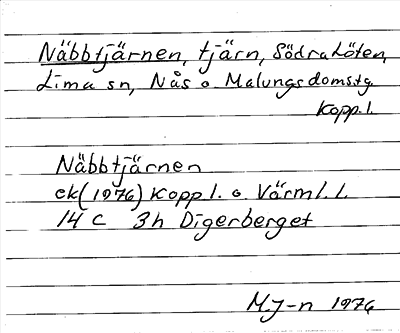 Näbbtjärnen, tjärn, Södra Löten,
Lima sn, Nås o. Malungs domstg.
Kopp. l.
Näbbtjärnen
ek (1976) Kopp l. o. Värml. l.
14 C 3h Digerberget
M. J-n 1976